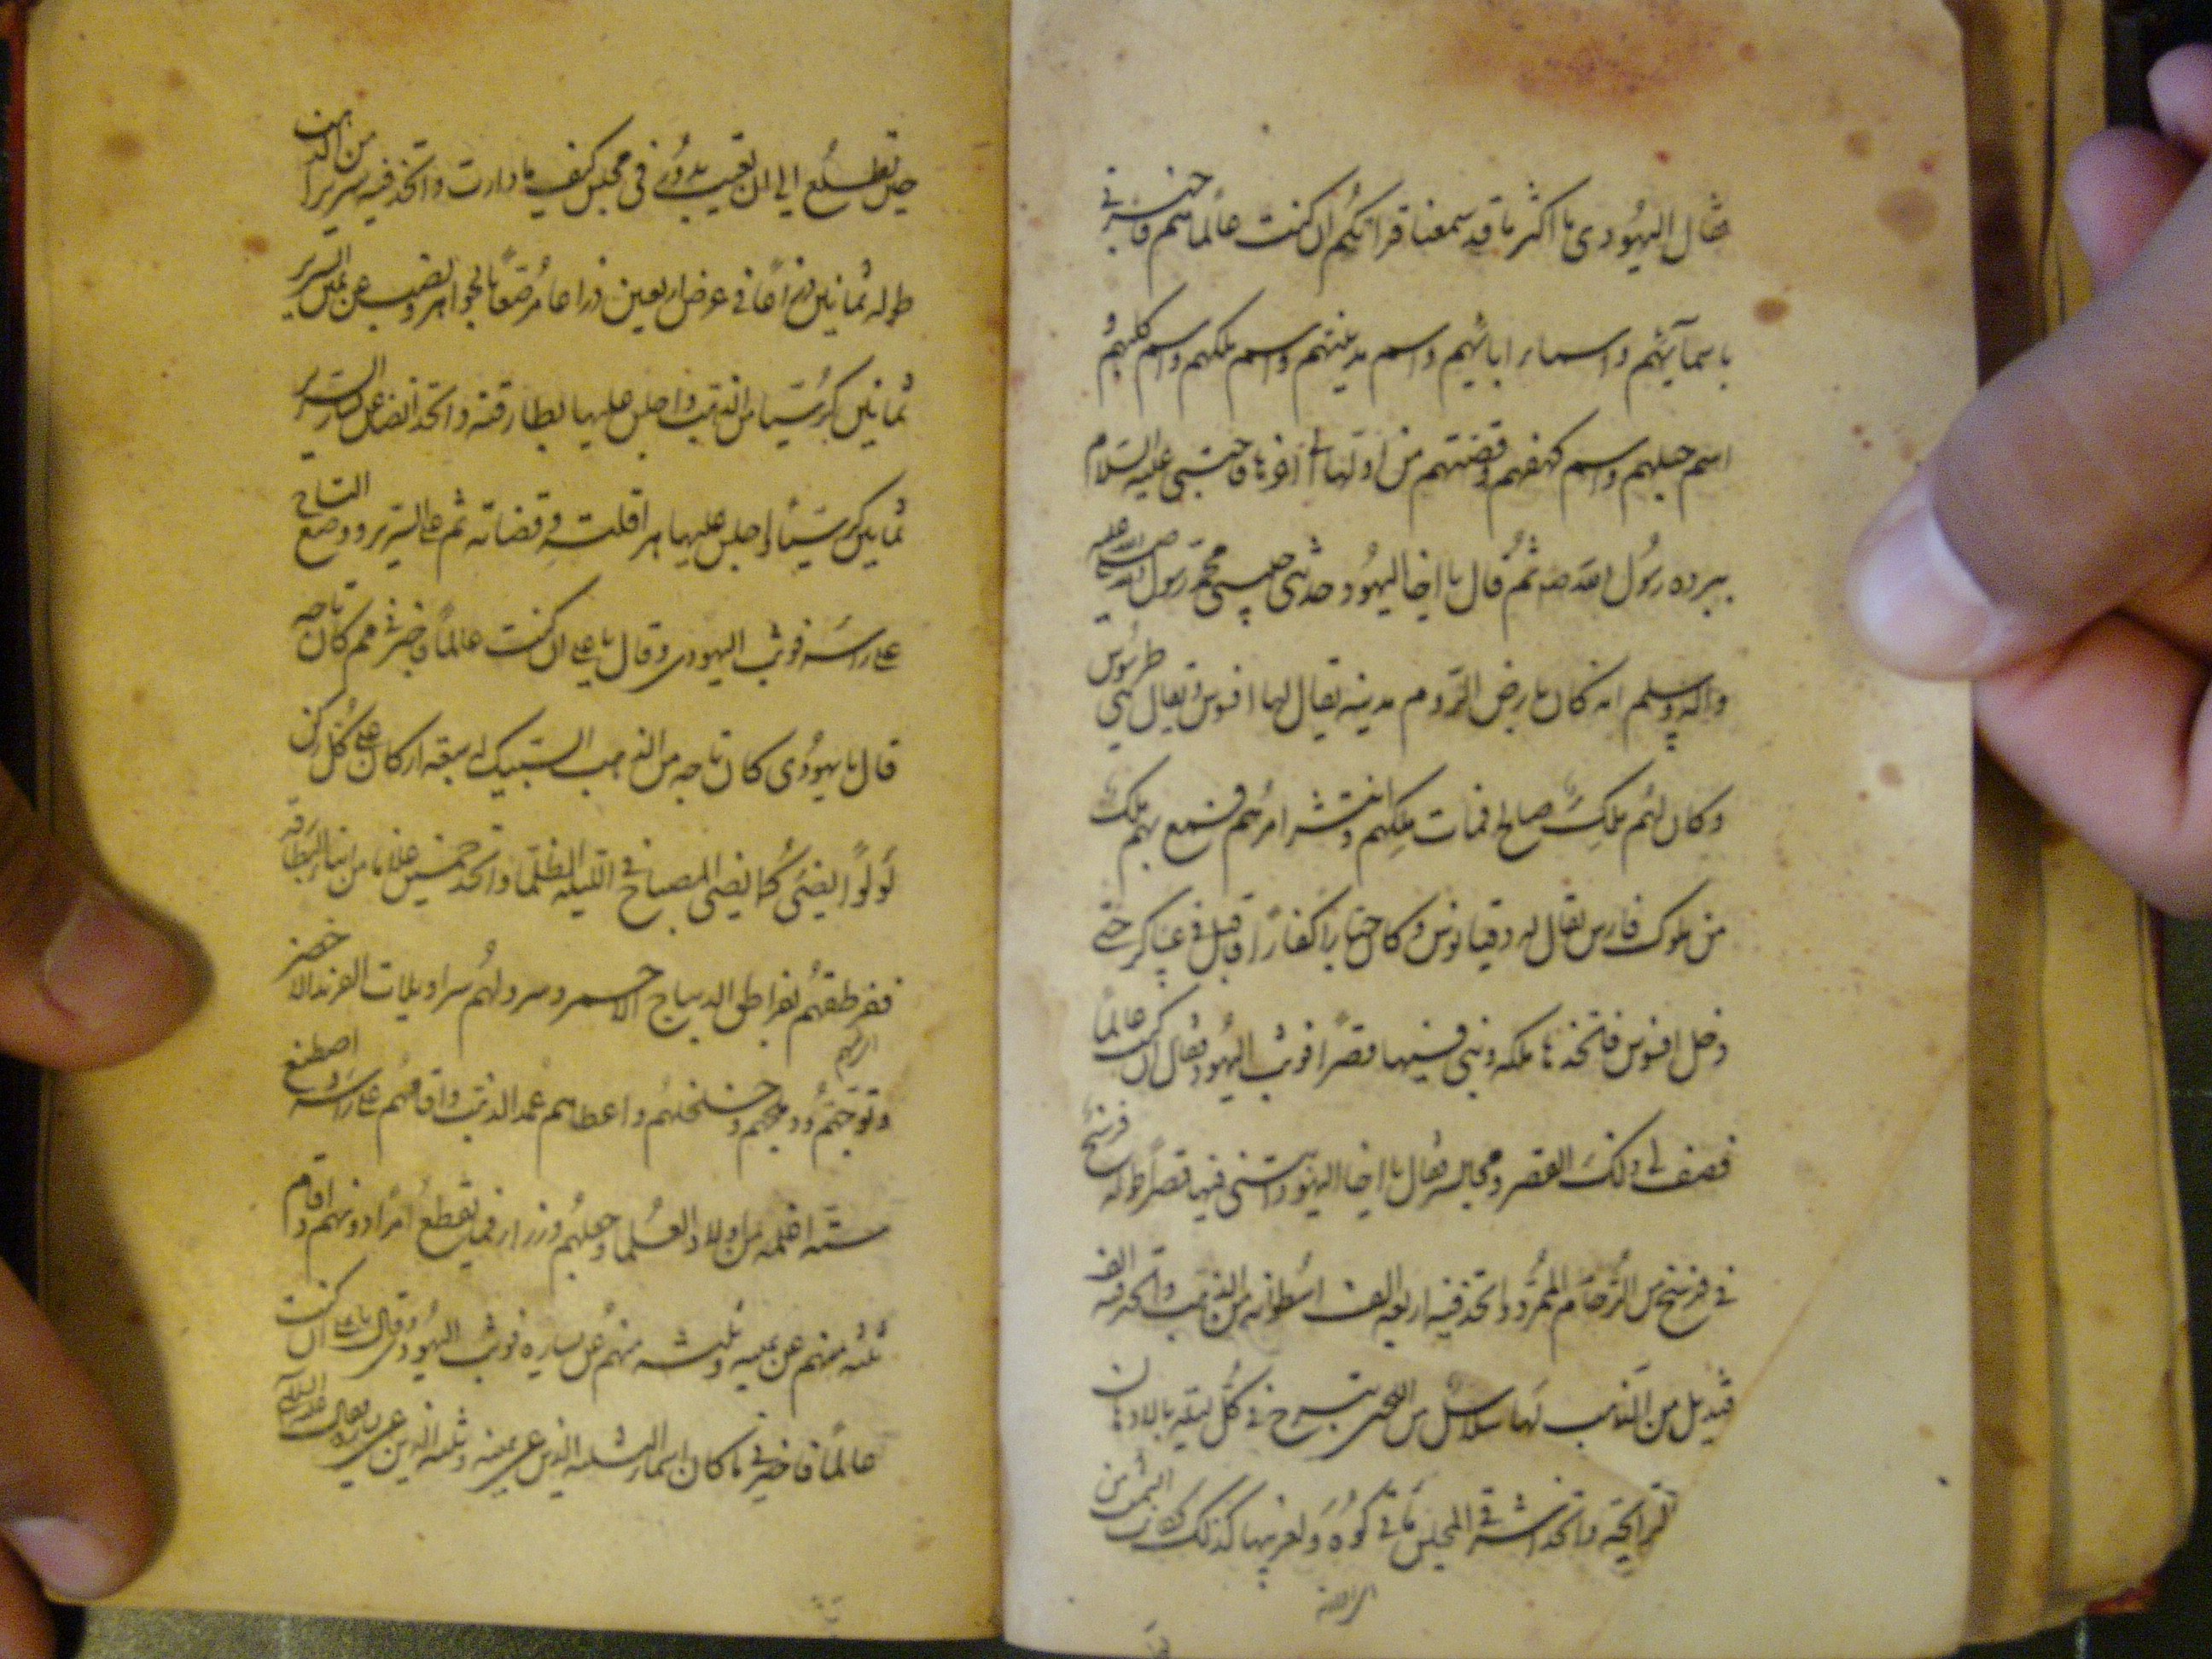 فقال اليهودى ما اكثر ما قد سمعنا قراتكم ان كنت عالما بهم فاخبرنى
باسمآئهم و اسماء ابائهم و اسم مدينتهم و اسم ملكهم و اسم كلبهم و
اسم جبلهم و اسم كهفهم و قصتهم من اولها الى اخرها فاحتبى عليه السلام
ببرده رسول الله ثم قال يا اخا اليهود حدثنى حبيبى محمد رسول الله صلى الله عليه
و اله و سلم انه كان بارض الروم مدينه يقال لها افسوس و يقال هى طرسوس
و كان لهم ملك صالح فمات ملكهم و انتشر امرهم فسمع بهم ملك
من ملوك فارس يقال له دقيانوس و كان جبارا كفارا فاقبل فى عساكر حتى
دخل افسوس فاتخذها ملكه و بنى فيها قصرا فوثب اليهود فقال ان كنت عالما
فصف لى ذلك القصر و مجالسه فقال يا اخا اليهود ابتنى فيها قصرا طوله فرسخ
فى فرسخ من الرخام الممرد و اتخذ فيه اربعه الف اسطوانه من الذهب و اتخذ فيه الف
قنديل من الذهب لها سلاسل من اللجين تسرج فى كل ليله بالادهان
و اتخذ فى المجلس كوه و لغربيها كذلك كان الشمس
حين تطلع الى ان تغيب تدور فى مجلس كيف ما دارت و اتخذ فيه سريرا من الذهب
طوله ثمانين ذراعا فى عرض اربعين ذراعا مرصعا بالجواهر و نصب عن يمين السرير
ثمانين كرسيا من الذهب و اجلس عليها بطارقته و اتخذ ايضا عن يسار السرير
ثمانين كرسيا و اجلس عليها هراقلته و قضاته ثم على السرير و وضع التاج
على راسه فوثب اليهودى و قال يا على ان كنت عالما فاخبرنى مم كان تاجه
قال يا يهودى كان تاجه من الذهب السبيك له سبعه اركان على كل ركن
لولوا يضئ كما يضئ المصباح فى الليله الظلما و اتخذ خمسين غلاما من ابناء البطارقه
فقرطقهم بقراطق الديباج الاحمر و سرولهم سراويلات الفرند الاخضر
و توجهم و دملجهم و خلخلهم و اعطاهم عمد الذهب و اقامهم على راسه و اصطنع
سته اغلمه من اولاد العلما و جعلهم وزراء فما يقطع امرا دونهم و اقام
ثلثه منهم عن يمينه و ثلثه منهم عن يساره فوثب اليهودى و قال يا على ان كنت
عالما فاخبرنى ما كان اسماء الثلثه الذين عن يمينه و ثلثه الذين عن يساره فقال